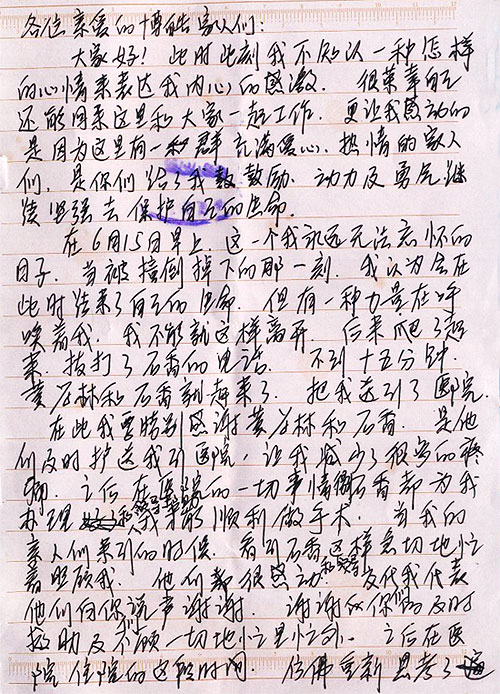 各位亲爱的博皓家人们:
大家好! 此时此刻我不知以一种怎样
的心情来表达我内心的感激. 很荣幸自己
还能回来这里和大家一起工作. 更让我感动的
是因为这里有一群充满爱心、热情的家人
们, 是你们给了我鼓励、动力及勇气继
续坚强去保护自己的生命.
在6月15日早上, 这一个我永远无法忘怀的
日子. 当被撞倒掉下的那一刻. 我认为会在
此时结束了自己的生命. 但有一种力量在呼
唤着我. 我不能就这样离开. 后来爬了起
来. 拨打了石香的电话. 不到十五分钟.
黄谷林和石香刻海来了. 把我送到了医院.
在此我要特别感谢黄谷林和石香. 是他
们及时护送我到医院, 让我减少了很多的疼
痛. 之后在医院的一切事情石香都为我
办理 我才能顺利做手术. 当我的
亲人们来到的时候. 看到石香这样急切地忙
着照顾我. 他们都很感动. 交代我代表
他们向你说声谢谢. 谢谢你们的及时
救助及不顾一切地忙里忙外. 之后在医
院住院的这段时间. 仿佛重新思考了